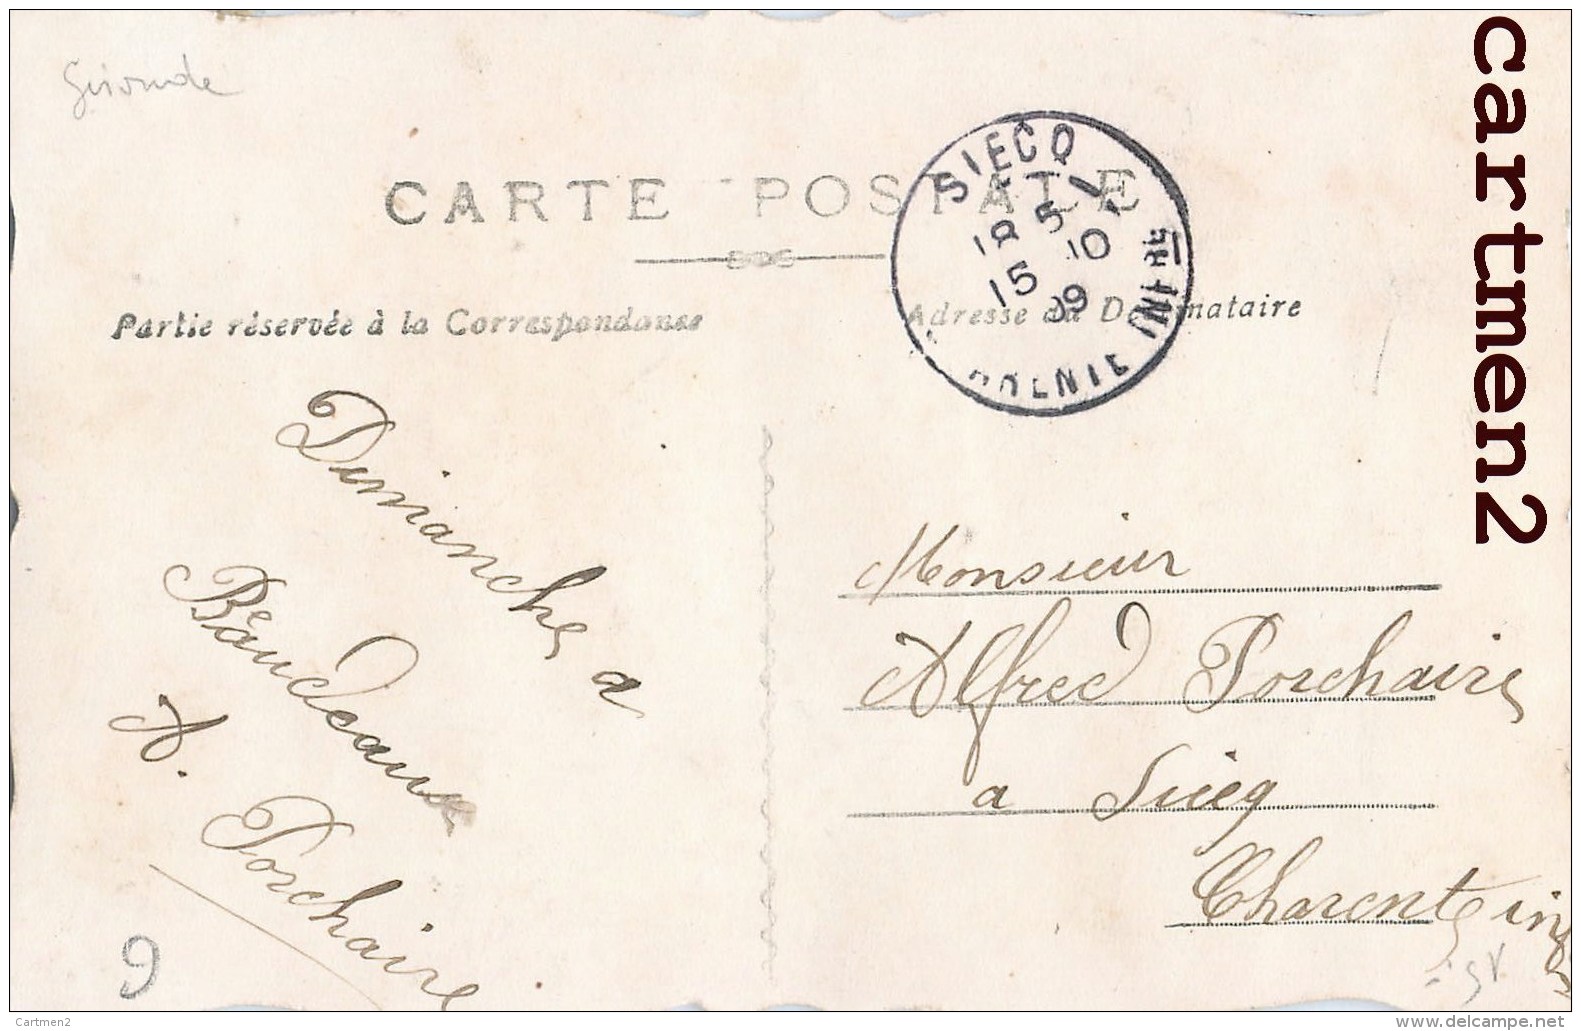 Gironde
CARTE POSTALE
Partie réservée à la Correspondance
Adresse du Destinataire
SIECQ
18 5
15 10
09
CHARENTE INFRE
Dimanche a
Beaudeaux
A. Porchaire
9
Monsieur
Alfred Porchaire
a Siecq
Charente inf
cartmen2
Cartmen2
www.delcampe.net